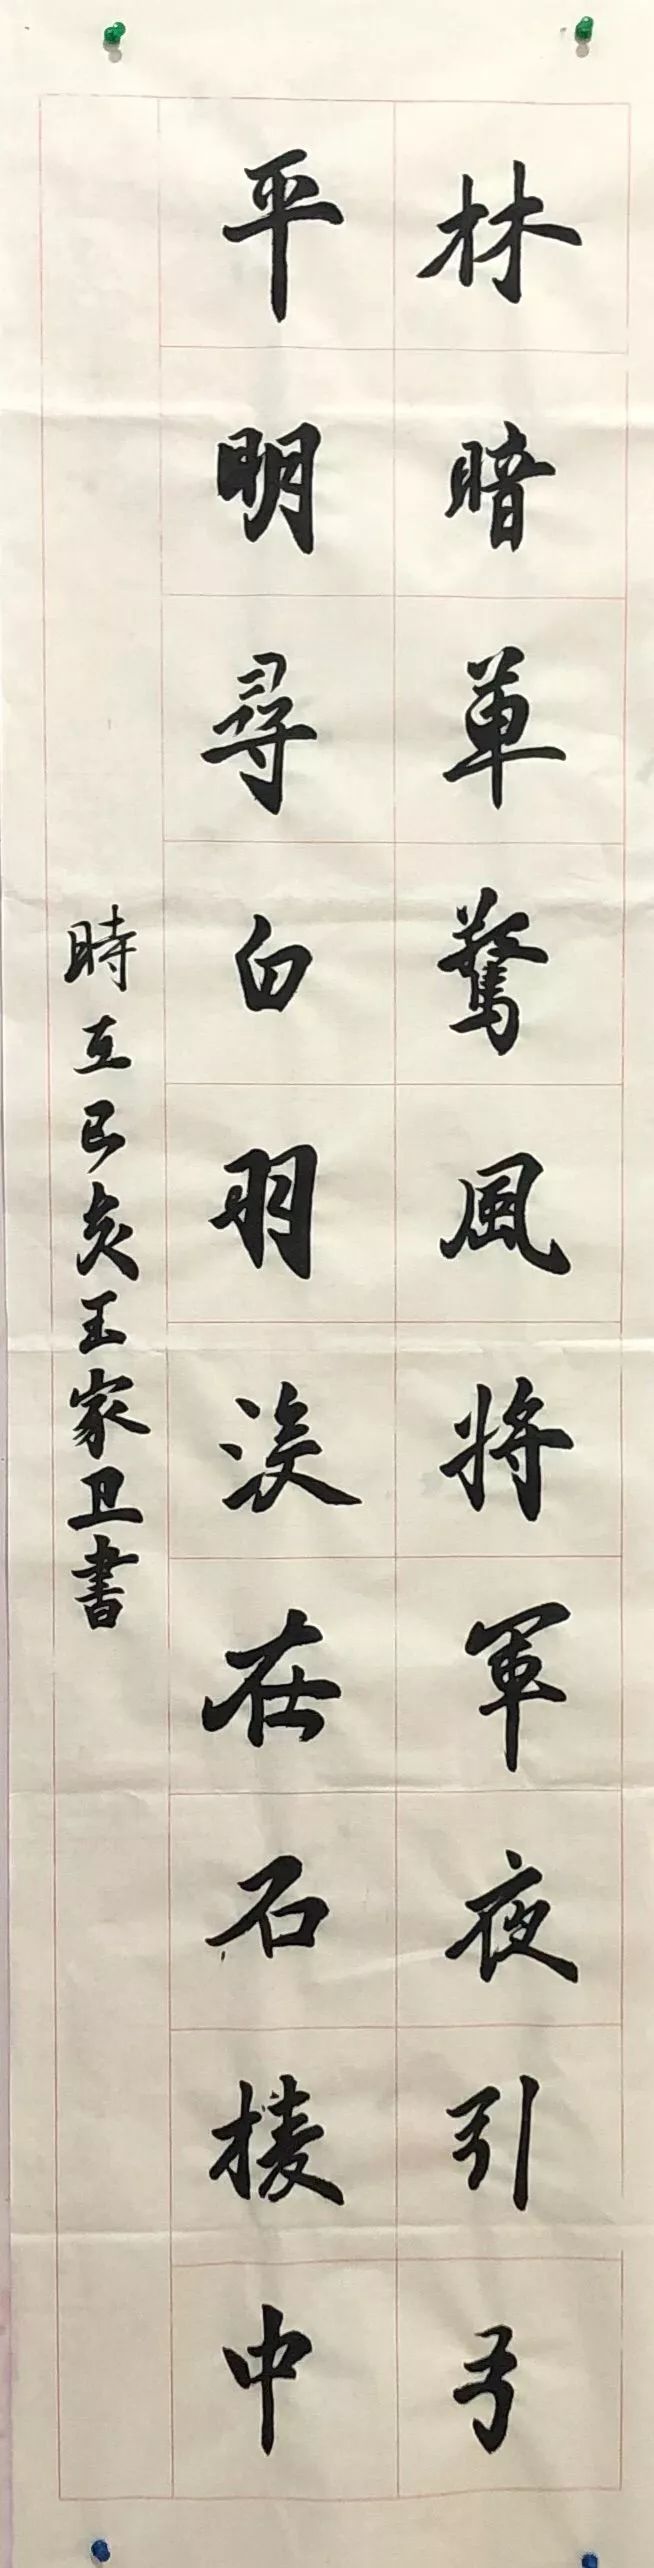 林暗草驚風將軍夜引弓
平明尋白羽没在石棱中
時在己亥王家卫書